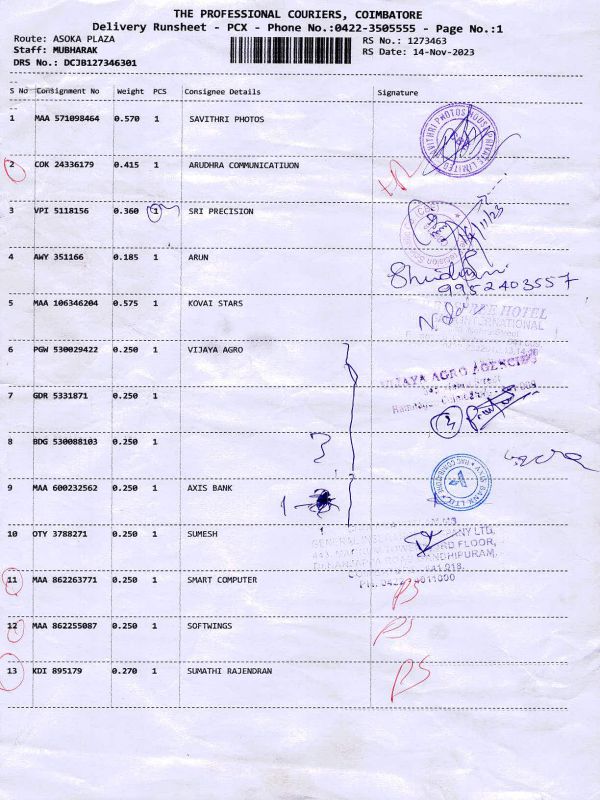 THE PROFESSIONAL COURIERS, COIMBATORE
Delivery Runsheet - PCX - Phone No.:0422-3505555 - Page No.:1
Route: ASOKA PLAZA
RS No.: 1273463
Staff: MUBHARAK
RS Date: 14-Nov-2023
DRS No.: DCJB127346301
S No Consignment No Weight PCS Consignee Details Signature
1 MAA 571098464 0.570 1 SAVITHRI PHOTOS
SAVITHRI PHOTOS HOUSE PRIVATE LIMITED
2 COK 24336179 0.415 1 ARUDHRA COMMUNICATIUON
3 VPI 5118156 0.360 1 SRI PRECISION
14/11/23
4 AWY 351166 0.185 1 ARUN
9952403557
5 MAA 106346204 0.575 1 KOVAI STARS
HOTEL
INTERNATIONAL
6 PGW 530029422 0.250 1 VIJAYA AGRO
VIJAYA AGRO AGENCIES
7 GDR 5331871 0.250 1
3
8 BDG 530088103 0.250 1
3
9 MAA 600232562 0.250 1 AXIS BANK
10 OTY 3788271 0.250 1 SUMESH
LTD,
FLOOR,
11 MAA 862263771 0.250 1 SMART COMPUTER
PS
12 MAA 862255087 0.250 1 SOFTWINGS
PS
13 KDI 895179 0.270 1 SUMATHI RAJENDRAN
PS